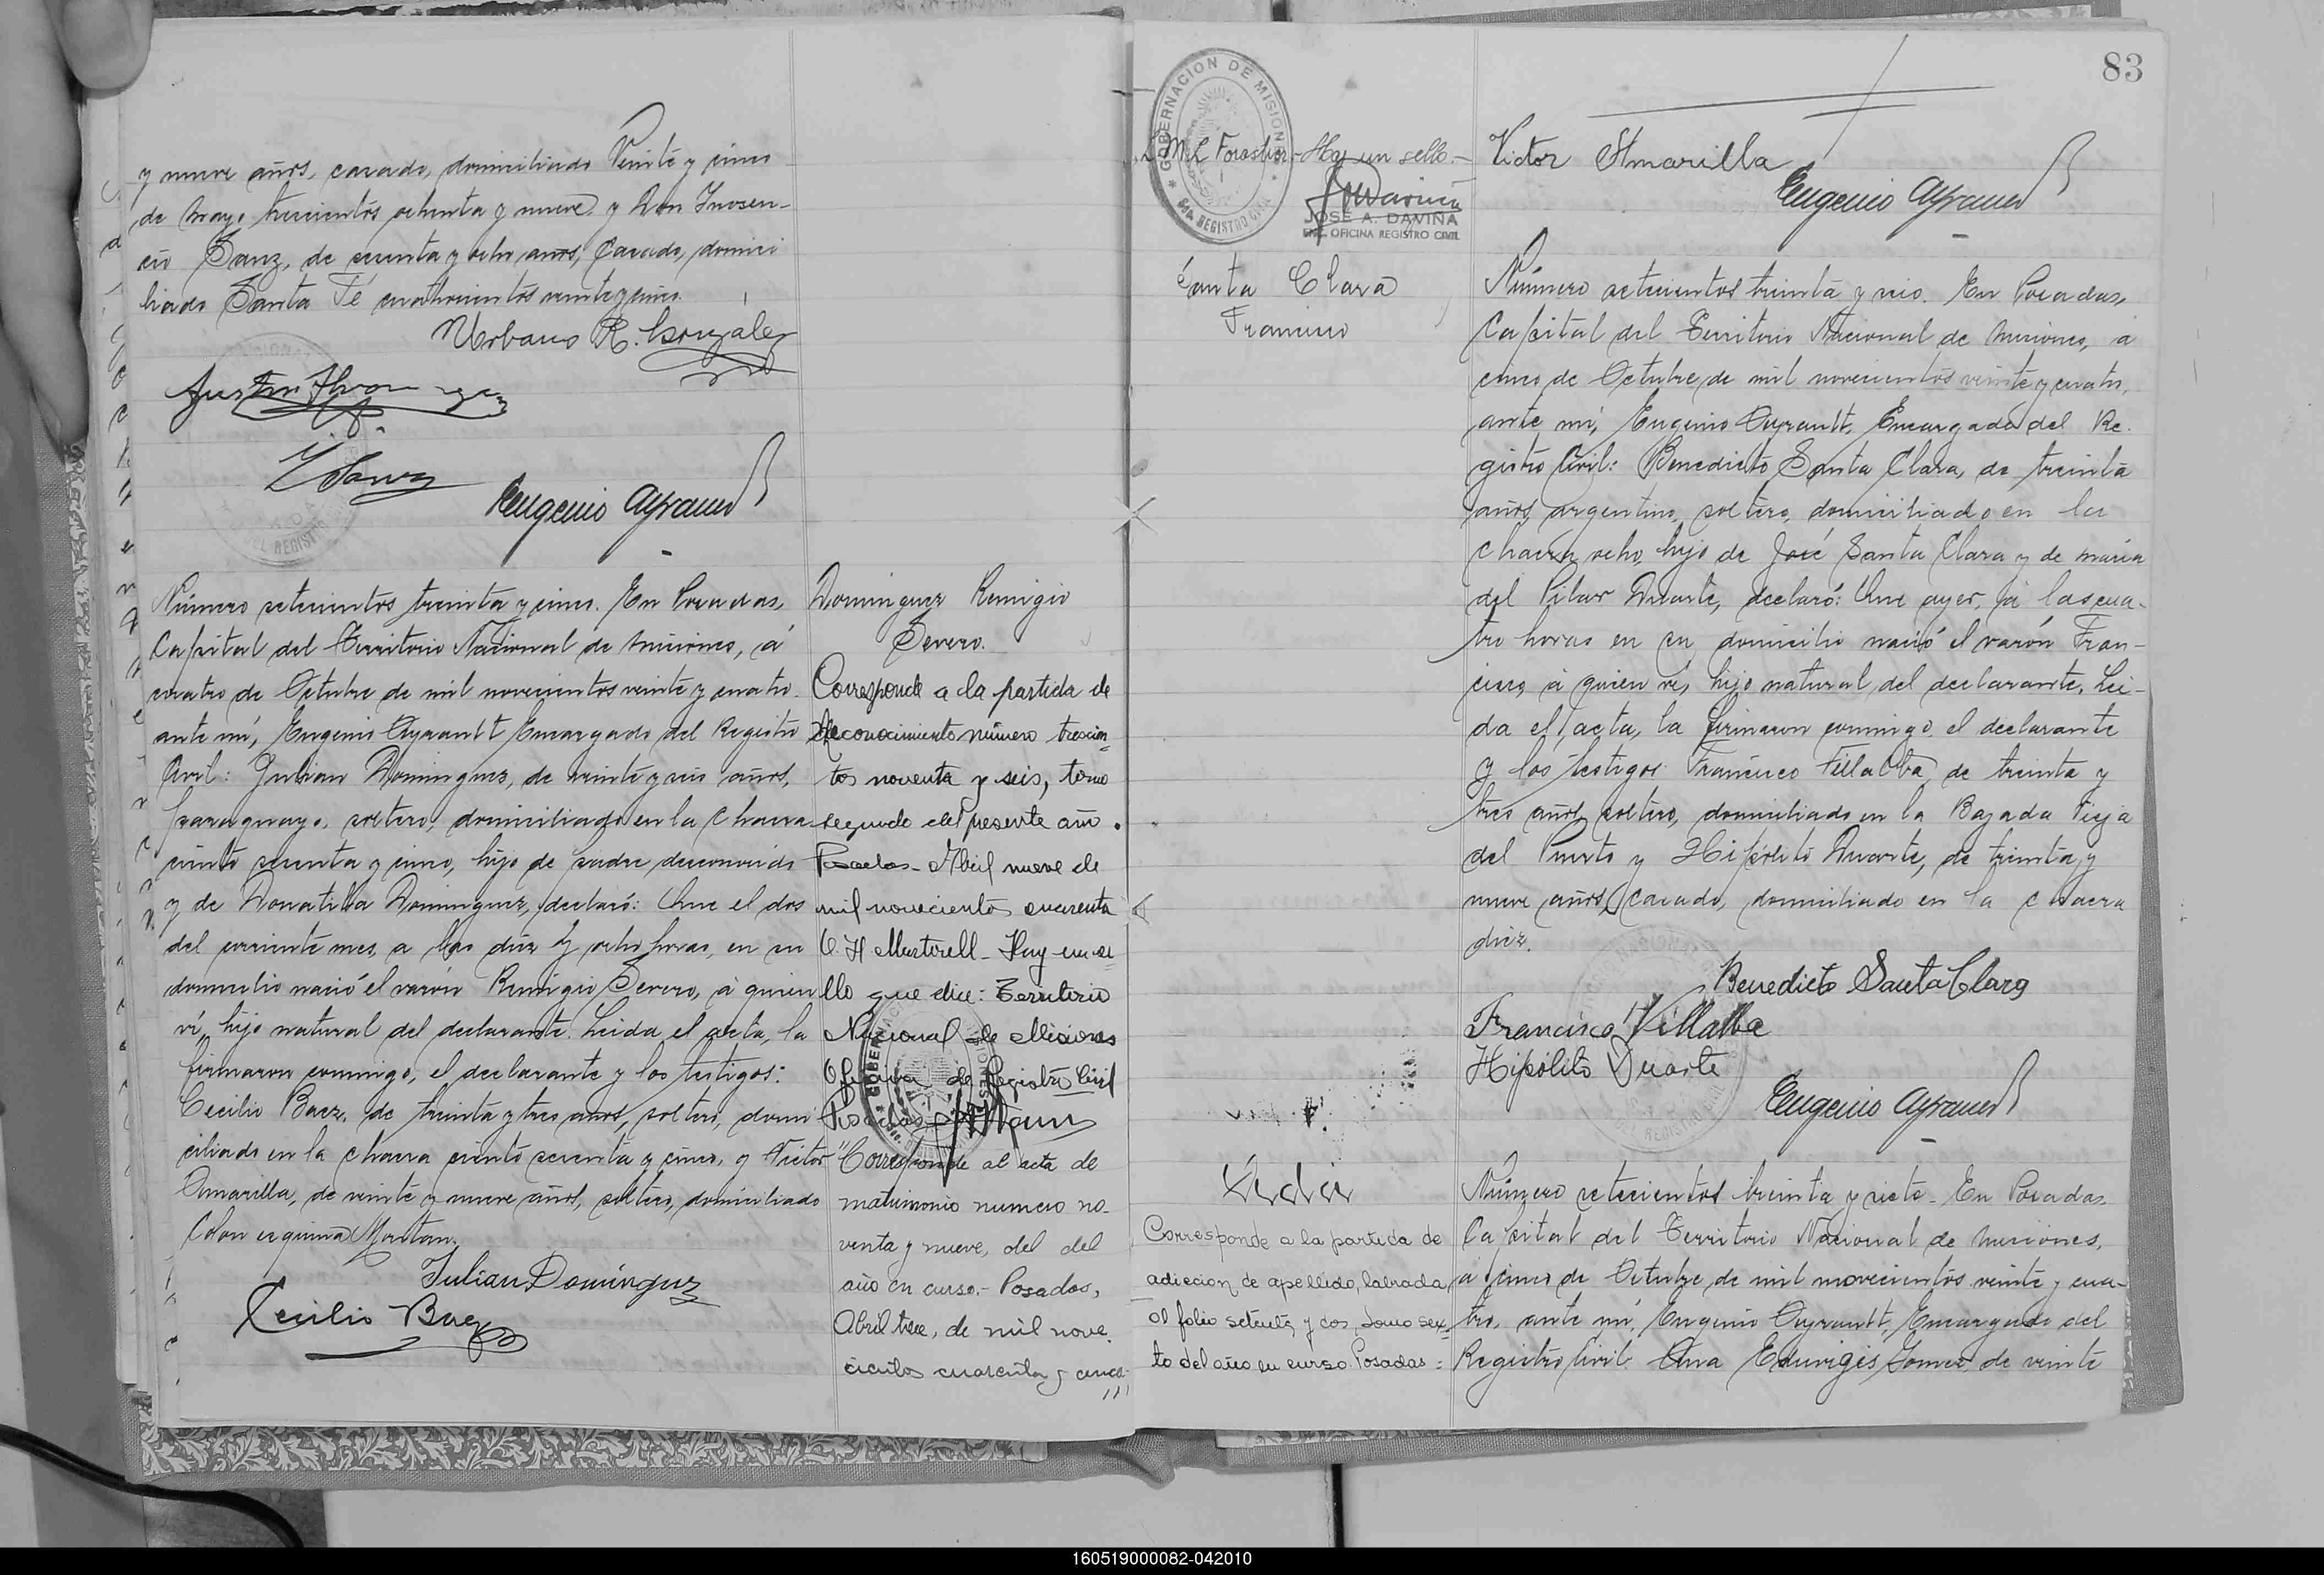 y nueve años, casado, domiciliado Veinte y cinco
de Mayo trescientos ochenta y nueve y Don Inosen-
cio Sanz, de sesenta y ocho años, casado, domici
liado Santa Fé cuatrocientos veinte y cinco.
Urbano R. Gonzalez
I Sanz
Eugenio Ayrault
Número setecientos treinta y cinco. En Posadas,
Capital del Territorio Nacional de Misiones, á
cuatro de Octubre de mil novecientos veinte y cuatro.
ante mí, Eugenio Ayrault Encargado del Registro
Civil: Julian Dominguez, de veinte y seis años,
paraguayo, soltero, domiciliado en la chacra
ciento sesenta y cinco, hijo de padre desconocido
y de Donatila Dominguez, declaró: Que el dos
del corriente mes, a las diez y ocho horas, en su
domicilio nació el varón Remigio Severo, á quien
ví, hijo natural del declarante. Leida el acta, la
firmaron conmigo, el declarante y los testigos:
Cecilio Baez, de treinta y tres años, soltero, domi
ciliado en la chacra ciento sesenta y cinco, y Victor
Amarilla, de veinte y nueve años, soltero, domiciliado
Colon esquina
Julian Dominguez
Cecilio Baez
Dominguez Remigio
Severo.
Corresponde a la partida de
Reconocimiento número trescien-
tos noventa y seis, tomo
segundo del presente año.
Posadas - Abril nueve de
mil novecientos cuarenta
C. H Martirell - Hay un se
llo que dice: Territorio
Nacional de Misiones
Oficina de Registro Civil
Posadas
"Corresponde al acta de
matrimonio numero no-
venta y nueve, del del
año en curso.- Posadas,
Abril trece, de mil nove.
cientos cuarenta y cinco.
///
83
GOBERNACION DE MISIONES
REGISTRO CIVIL
M L Forastier - Hay un sello.-
JOSE A. DAVIÑA
ENC. OFICINA REGISTRO CIVIL
Victor Amarilla
Eugenio Ayrault
Santa Clara
Francisco
Número setecientos treinta y seis. En Posadas,
Capital del Territorio Nacional de Misiones, á
cinco de Octubre de mil novecientos veinte y cuatro,
ante mí, Eugenio Ayrault, Encargado del Re-
gistro Civil: Benedicto Santa Clara, de treinta
años, argentino, soltero, domiciliado en la
chacra ocho, hijo de José Santa Clara y de María
del Pilar Duarte, declaró: Que ayer, á las cua-
tro horas en su domicilio nació el varón Fran-
cisco, á quien ví, hijo natural del declarante. Lei-
da el acta, la firmaron conmigo, el declarante
y los testigos: Francisco Villalba, de treinta y
tres años, soltero, domiciliado en la Bajada Vieja
del Puerto y Hipólito Duarte, de treinta y
nueve años, casado, domiciliado en la chacra
diez.
Benedicto Santa Clara
Francisco Villalba
Hipólito Duarte
Eugenio Ayrault
Corresponde a la partida de
adiccion de apellido, labrada
al folio setenta y dos, tomo sex-
to del año en curso. Posadas:
Número setecientos treinta y siete - En Posadas.
Capital del Territorio Nacional de Misiones,
a cinco de Octubre de mil novecientos veinte y cua-
tro, ante mí, Eugenio Ayrault, Encargado del
Registro Civil: Ana Eduvigis Gomez, de veinte
160519000082-042010